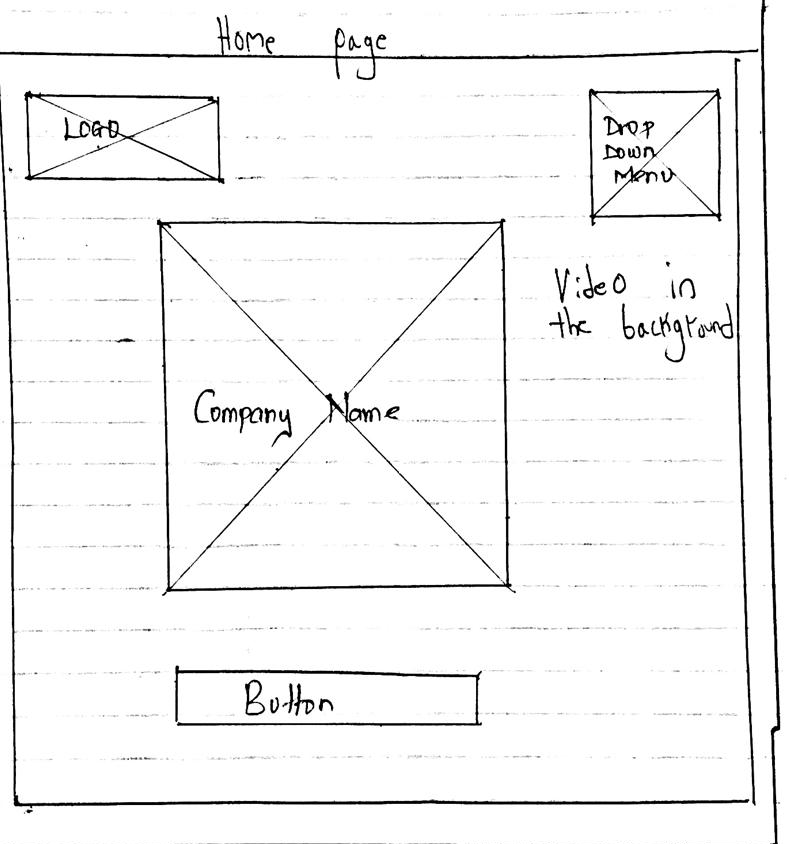 Home page
LOGO
Drop
Down
Menu
Video in
the background
Company Name
Button